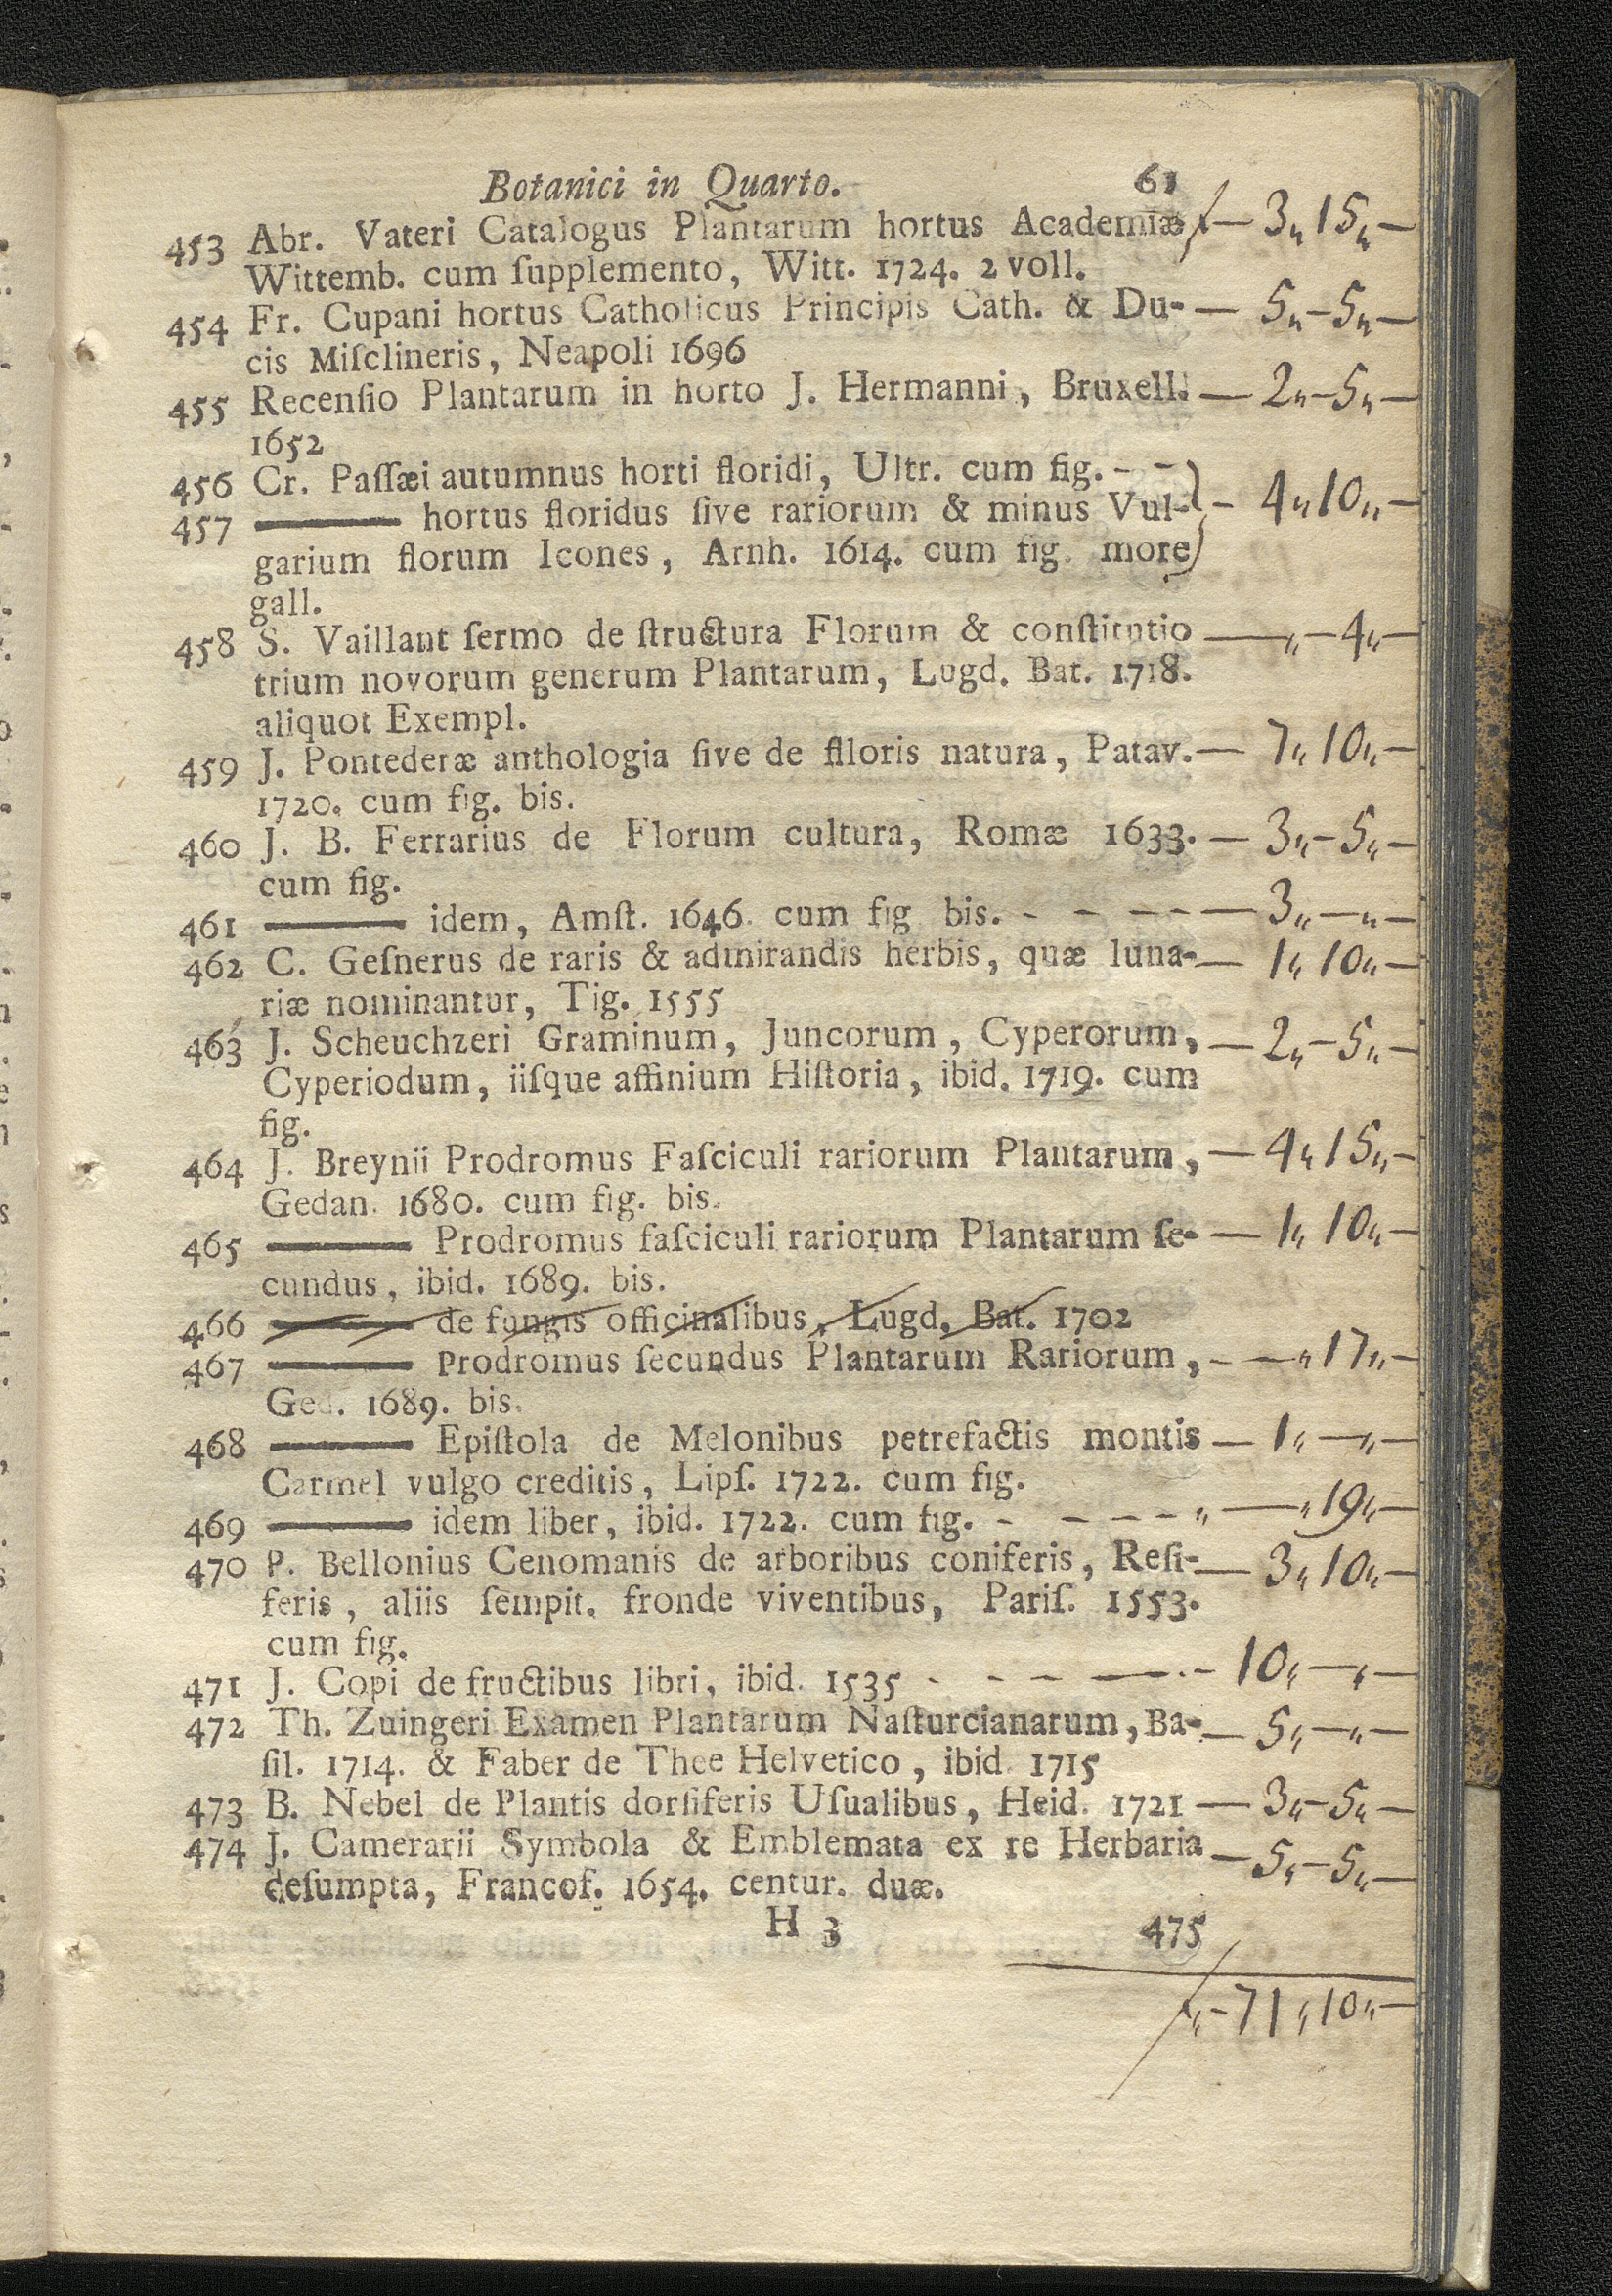 Botanici in Quarto. 61
453 Abr. Vateri Catalogus Plantarum hortus Academiæ ƒ — 3„ 15„ —
Wittemb. cum ſupplemento, Witt. 1724. 2 voll.
454 Fr. Cupani hortus Catholicus Principis Cath. & Du- — 5„ – 5„ —
cis Miſclineris, Neapoli 1696
455 Recenſio Plantarum in horto J. Hermanni, Bruxell. — 2„ – 5„ —
1652
456 Cr. Paſſæi autumnus horti floridi, Ultr. cum fig. - -
457 ——— hortus floridus ſive rariorum & minus Vul- } – 4„ 10„ —
garium florum Icones, Arnh. 1614. cum fig. more
gall.
458 S. Vaillant ſermo de ſtructura Florum & conſtitutio — „ – 4„ —
trium novorum generum Plantarum, Lugd. Bat. 1718.
aliquot Exempl.
459 J. Pontederæ anthologia ſive de flloris natura, Patav. — 7„ 10„ —
1720. cum fig. bis.
460 J. B. Ferrarius de Florum cultura, Romæ 1633. — 3„ – 5„ —
cum fig.
461 ——— idem, Amſt. 1646. cum fig bis. - - - - — 3„ — „ —
462 C. Geſnerus de raris & admirandis herbis, quæ luna- — 1„ 10„ —
riæ nominantur, Tig. 1555
463 J. Scheuchzeri Graminum, Juncorum, Cyperorum, — 2„ – 5„ —
Cyperiodum, iiſque affinium Hiſtoria, ibid. 1719. cum
fig.
464 J. Breynii Prodromus Faſciculi rariorum Plantarum, — 4„ 15„ —
Gedan. 1680. cum fig. bis.
465 ——— Prodromus faſciculi rariorum Plantarum ſe- — 1„ 10„ —
cundus, ibid. 1689. bis.
466 ——— de fungis officinalibus, Lugd, Bat. 1702
467 ——— Prodromus ſecundus Plantarum Rariorum, - — „ 17„ —
Ged. 1689. bis.
468 ——— Epiſtola de Melonibus petrefactis montis — 1„ — „ —
Carmel vulgo creditis, Lipſ. 1722. cum fig.
469 ——— idem liber, ibid. 1722. cum fig. - - - - „ — „ 19„ —
470 P. Bellonius Cenomanis de arboribus coniferis, Reſi- — 3„ 10„ —
feris, aliis ſempit. fronde viventibus, Pariſ. 1553.
cum fig.
471 J. Copi de fructibus libri, ibid. 1535 - - - — - 10„ — „ —
472 Th. Zuingeri Examen Plantarum Naſturcianarum, Ba- — 5„ — „ —
ſil. 1714. & Faber de Thee Helvetico, ibid. 1715
473 B. Nebel de Plantis dorſiferis Uſualibus, Heid. 1721 — 3„ – 5„ —
474 J. Camerarii Symbola & Emblemata ex re Herbaria — 5„ – 5„ —
deſumpta, Francof. 1654. centur. duæ.
H 3 475
ƒ„ – 71„ 10„ —